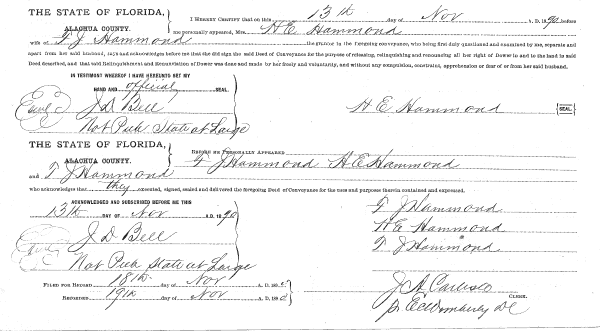 THE STATE OF FLORIDA,
ALACHUA COUNTY.
I HEREBY CERTIFY that on this 13th day of Nov A. D. 1890, before
me personally appeared, Mrs. H E Hammond
wife of T J Hammond the grantor in the foregoing conveyance, who being first duly questioned and examined by me, separate and
apart from her said husband, says and acknowledges before me that she did sign the said Deed of Conveyance for the purpose of releasing, relinquishing and renouncing all her right of Dower in and to the land in said
Deed described, and that said Relinquishment and Renunciation of Dower was done and made by her freely and voluntarily, and without any compulsion, constraint, apprehension or fear of or from her said husband.
IN TESTIMONY WHEREOF I HAVE HEREUNTO SET MY
HAND AND official SEAL.
J D Bell
Not Pub State at Large
H E Hammond SEAL
THE STATE OF FLORIDA,
ALACHUA COUNTY.
BEFORE ME PERSONALLY APPEARED T J Hammond H E Hammond
and T J Hammond
who acknowledges that they executed, signed, sealed and delivered the foregoing Deed of Conveyance for the uses and purposes therein contained and expressed.
ACKNOWLEDGED AND SUBSCRIBED BEFORE ME THIS
13th DAY OF Nov A.D. 1890
J D Bell
Not Pub State at Large
T J Hammond
H E Hammond
T J Hammond
FILED FOR RECORD 18th day of Nov A. D. 1890
RECORDED 19th day of Nov A. D. 1890
J A Carlisle
CLERK.
E C Wimberly DC